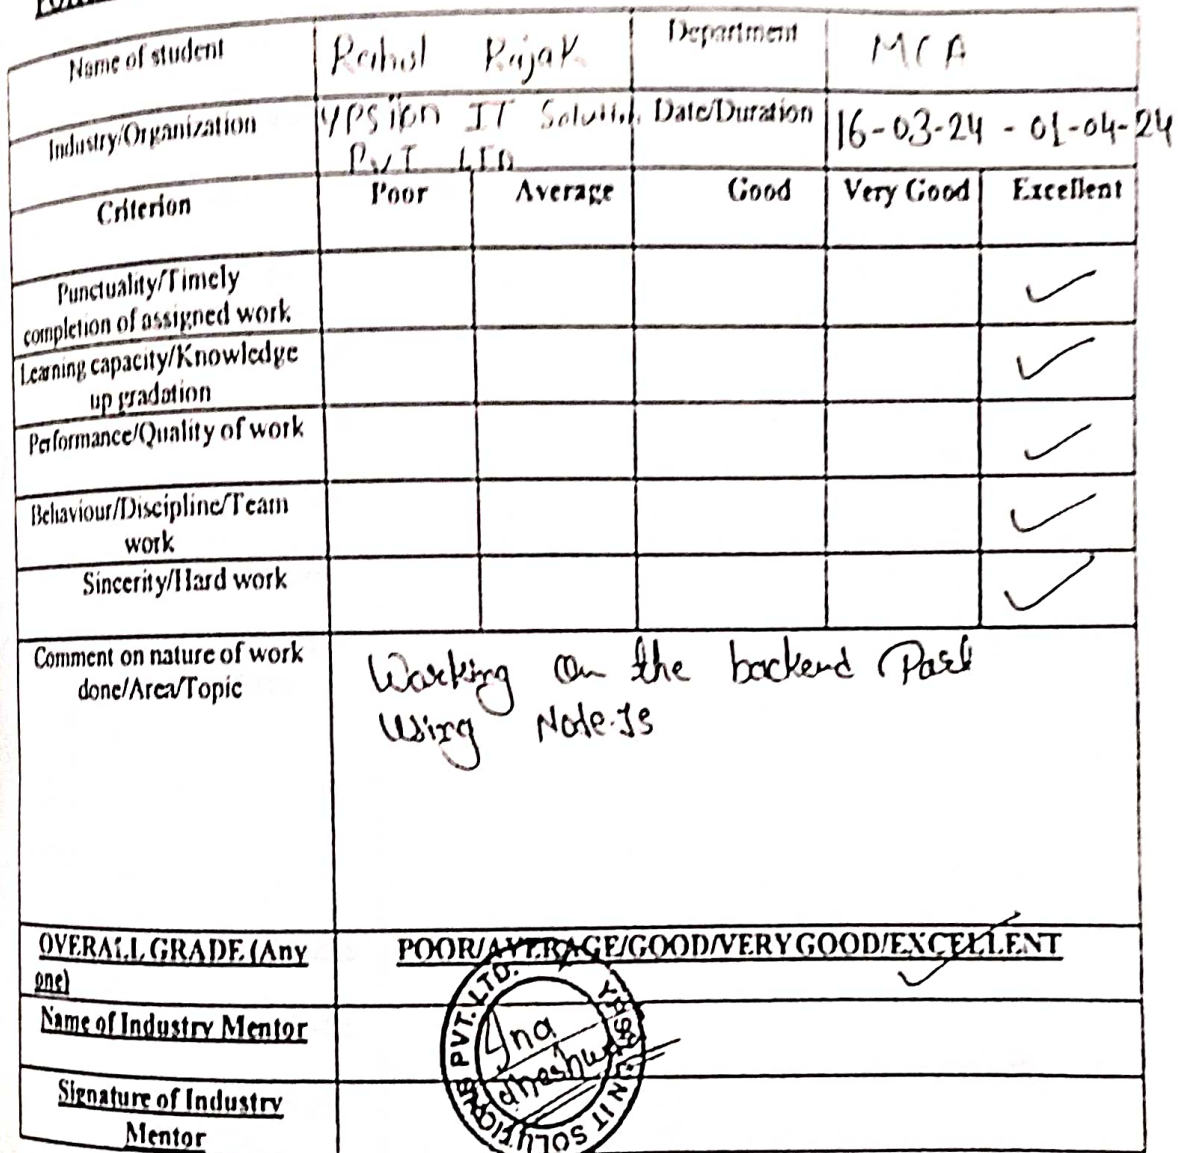 Name of student Rahul Rajak Department MCA
Industry/Organization YPSilon IT Solution Date/Duration 16-03-24 - 01-04-24
PVT LTD
Criterion Poor Average Good Very Good Excellent
Punctuality/Timely
completion of assigned work ✓
Learning capacity/Knowledge
up gradation ✓
Performance/Quality of work ✓
Behaviour/Discipline/Team
work ✓
Sincerity/Hard work ✓
Comment on nature of work
done/Area/Topic
Working on the backend Part
Using Node.Js
OVERALL GRADE (Any
one)
POOR/AVERAGE/GOOD/VERY GOOD/EXCELLENT ✓
Name of Industry Mentor
Signature of Industry
Mentor
IT SOLUTIONS PVT. LTD.